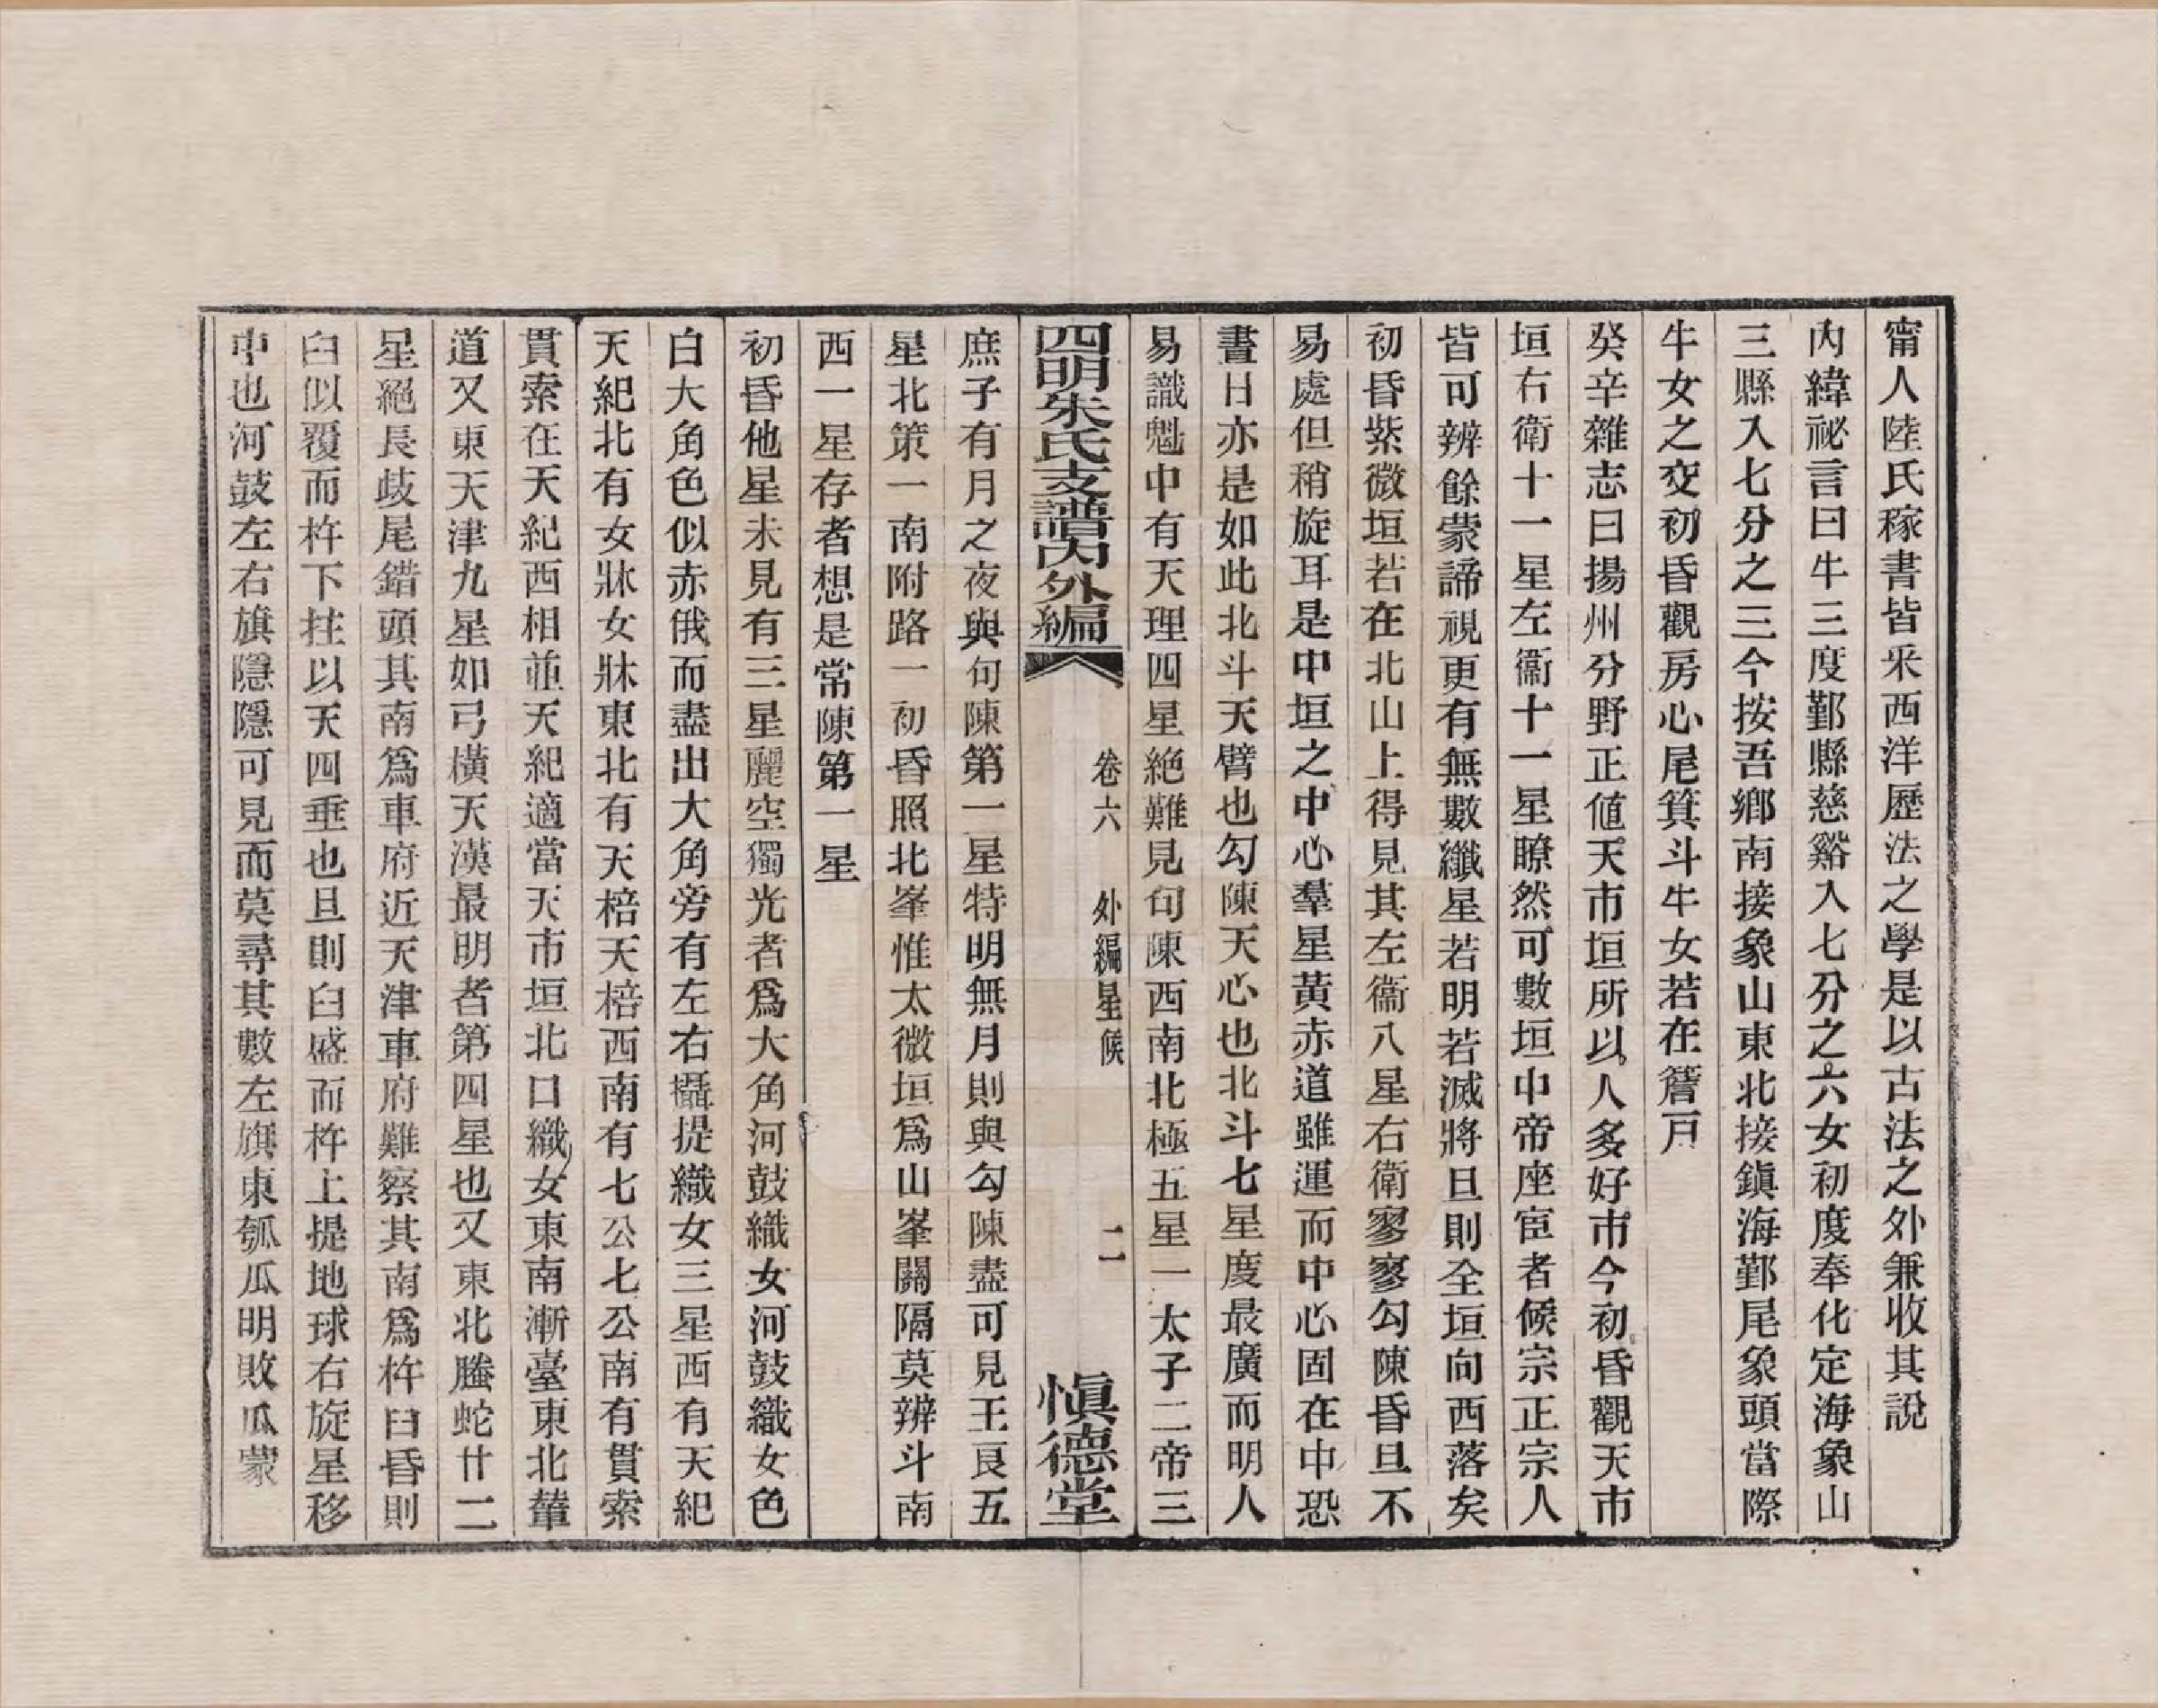 甯人陸氏稼書皆采西洋歷法之學是以古法之外兼收其說
內緯祕言曰牛三度鄞縣慈谿入七分之六女初度奉化定海象山
三縣入七分之三今按吾鄉南接象山東北接鎭海鄞尾象頭當際
牛女之交初昏觀房心尾箕斗牛女若在簷戸
癸辛雜志曰揚州分野正値天市垣所以人多好市今初昏觀天市
垣右衛十一星左衞十一星瞭然可數垣中帝座宦者候宗正宗人
皆可辨餘蒙諦視更有無數纖星若明若滅將旦則全垣向西落矣
初昏紫微垣若在北山上得見其左衞八星右衛寥寥勾陳昏旦不
易處但稍旋耳是中垣之中心羣星黃赤道雖運而中心固在中恐
晝日亦是如此北斗天臂也勾陳天心也北斗七星度最廣而明人
易識魁中有天理四星絶難見句陳西南北極五星一太子二帝三
四明朱氏支譜內外編
卷六 外編星候
二
愼德堂
庶子有月之夜與句陳第一星特明無月則與勾陳盡可見王良五
星北策一南附路一初昏照北峯惟太微垣爲山峯關隔莫辨斗南
西一星存者想是常陳第一星
初昏他星未見有三星麗空獨光者爲大角河鼓織女河鼓織女色
白大角色似赤俄而盡出大角旁有左右攝提織女三星西有天紀
天紀北有女牀女牀東北有天棓天棓西南有七公七公南有貫索
貫索在天紀西相並天紀適當天市垣北口織女東南漸臺東北輦
道又東天津九星如弓橫天漢最明者第四星也又東北螣蛇廿二
星絕長歧尾錯頭其南爲車府近天津車府難察其南爲杵臼昏則
臼似覆而杵下拄以天四垂也且則臼盛而杵上提地球右旋星移
中也河鼓左右旗隱隱可見而莫尋其數左旗東瓠瓜明敗瓜蒙